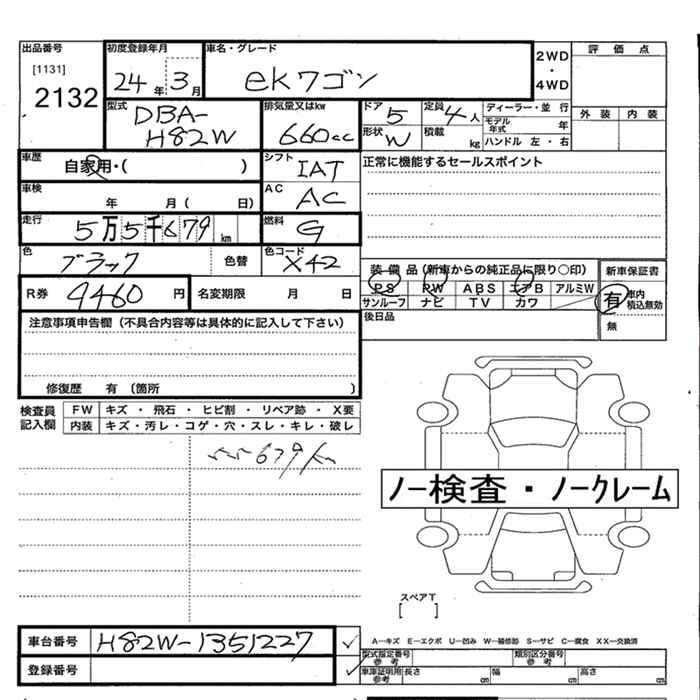 出品番号
[1131]
2132
初度登録年月
24年 3月
車名・グレード
eKワゴン
2WD
・
4WD
評 価 点
外 装 内 装
型式
DBA-
H82W
排気量又はkw
660cc
ドア 5
形状 W
定員 4人
積載 kg
ディーラー・並 行
モデル年式 年
ハンドル 左・右
車歴
自家用・( )
シフト
IAT
正常に機能するセールスポイント
車検
年 月( 日)
AC
AC
走行
5万5千679km
燃料
G
色
ブラック
色替
色コード
X42
装 備 品 (新車からの純正品に限り○印)
PS PW ABS エアB アルミW
サンルーフ ナビ TV カワ
新車保証書
有 車内積込無効
無
R券 9460円
名変期限 月 日
後日品
注意事項申告欄(不具合内容等は具体的に記入して下さい)
修復歴 有 (箇所 )
検査員
記入欄
FW キズ ・ 飛石 ・ ヒビ割 ・ リペア跡 ・ X要
内装 キズ・汚レ・コゲ・穴・スレ・キレ・破レ
55679km
ノー検査・ノークレーム
スペアT
[ ]
車台番号 H82W-1351227
登録番号
A―キズ E―エクボ U―凹み W―補修跡 S―サビ C―腐食 XX―交換済
型式指定番号
参考
類別区分番号
参考
車庫証明用
参考
長さ cm 幅 cm 高さ cm